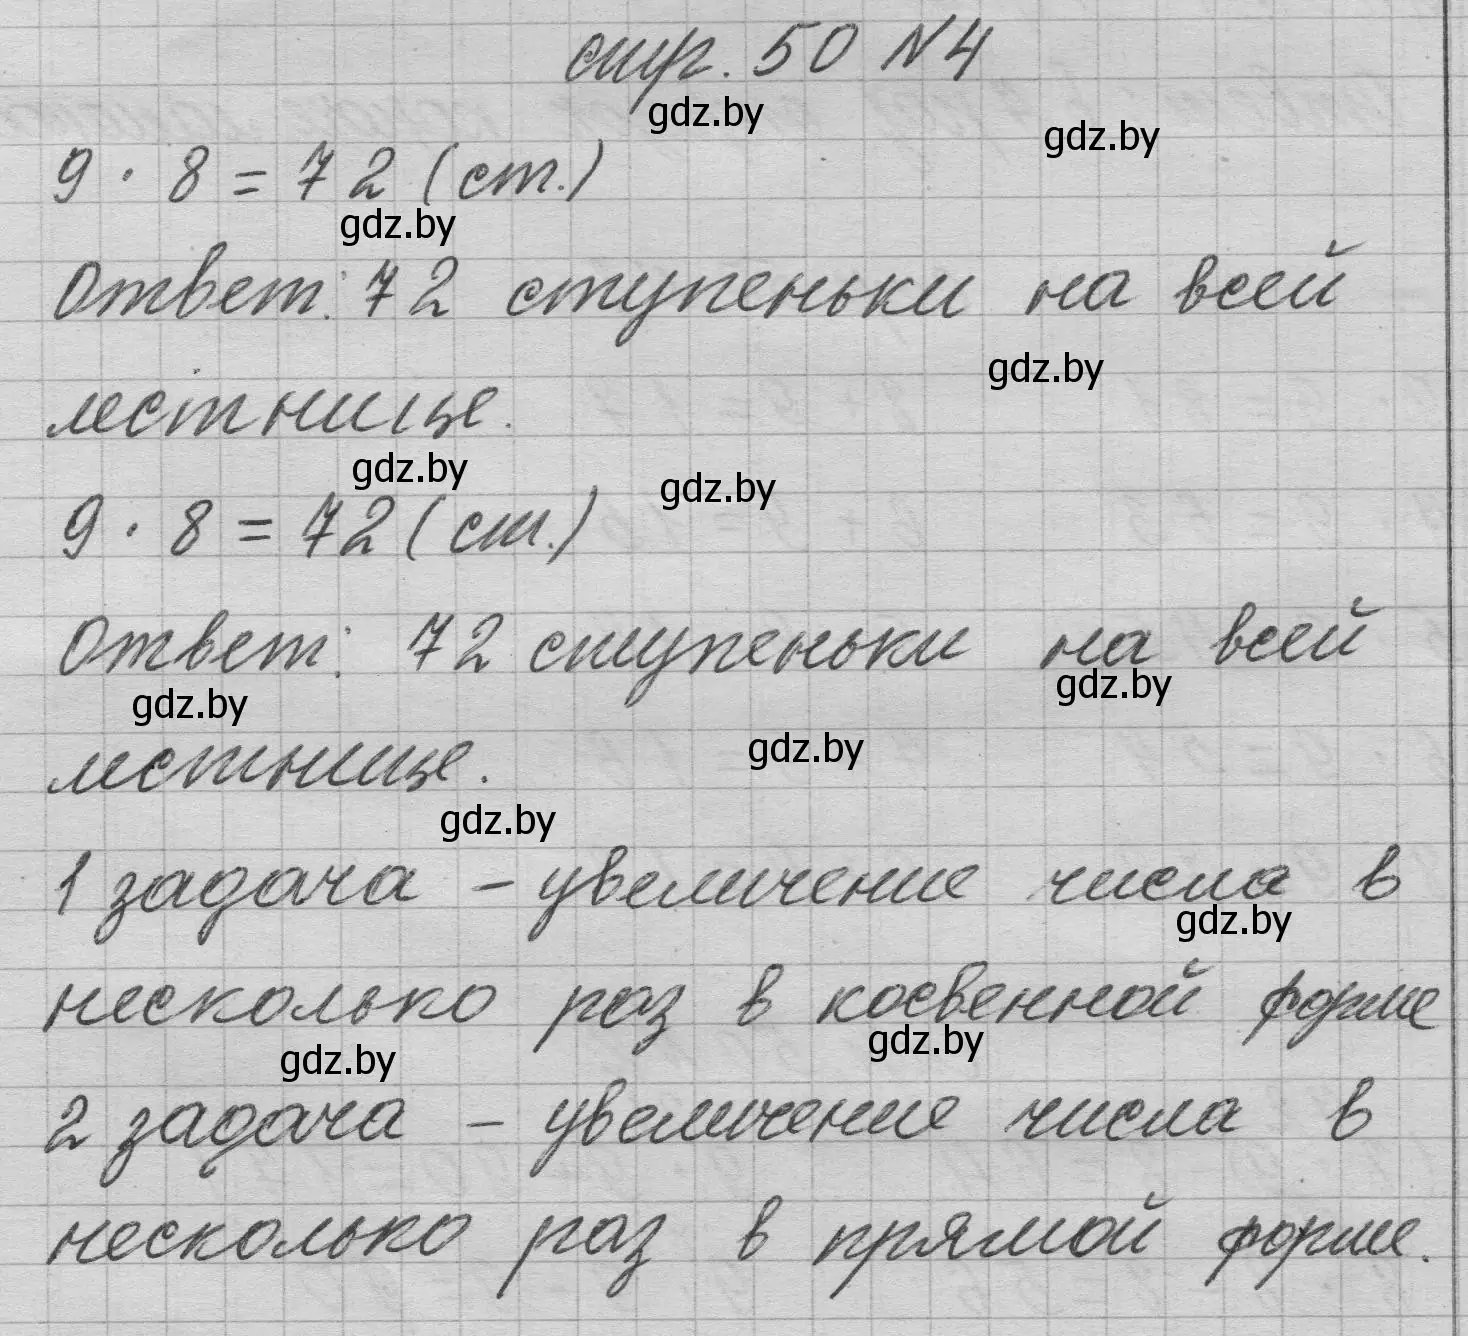 стр. 50 №4
gdz.by
gdz.by
9 · 8 = 72 (ст.)
gdz.by
Ответ: 72 ступеньки на всей
gdz.by
лестнице.
gdz.by
gdz.by
9 · 8 = 72 (ст.)
Ответ: 72 ступеньки на всей
gdz.by
gdz.by
лестнице.
gdz.by
gdz.by
1 задача – увеличение числа в
gdz.by
несколько раз в косвенной форме
gdz.by
gdz.by
2 задача – увеличение числа в
несколько раз в прямой форме.